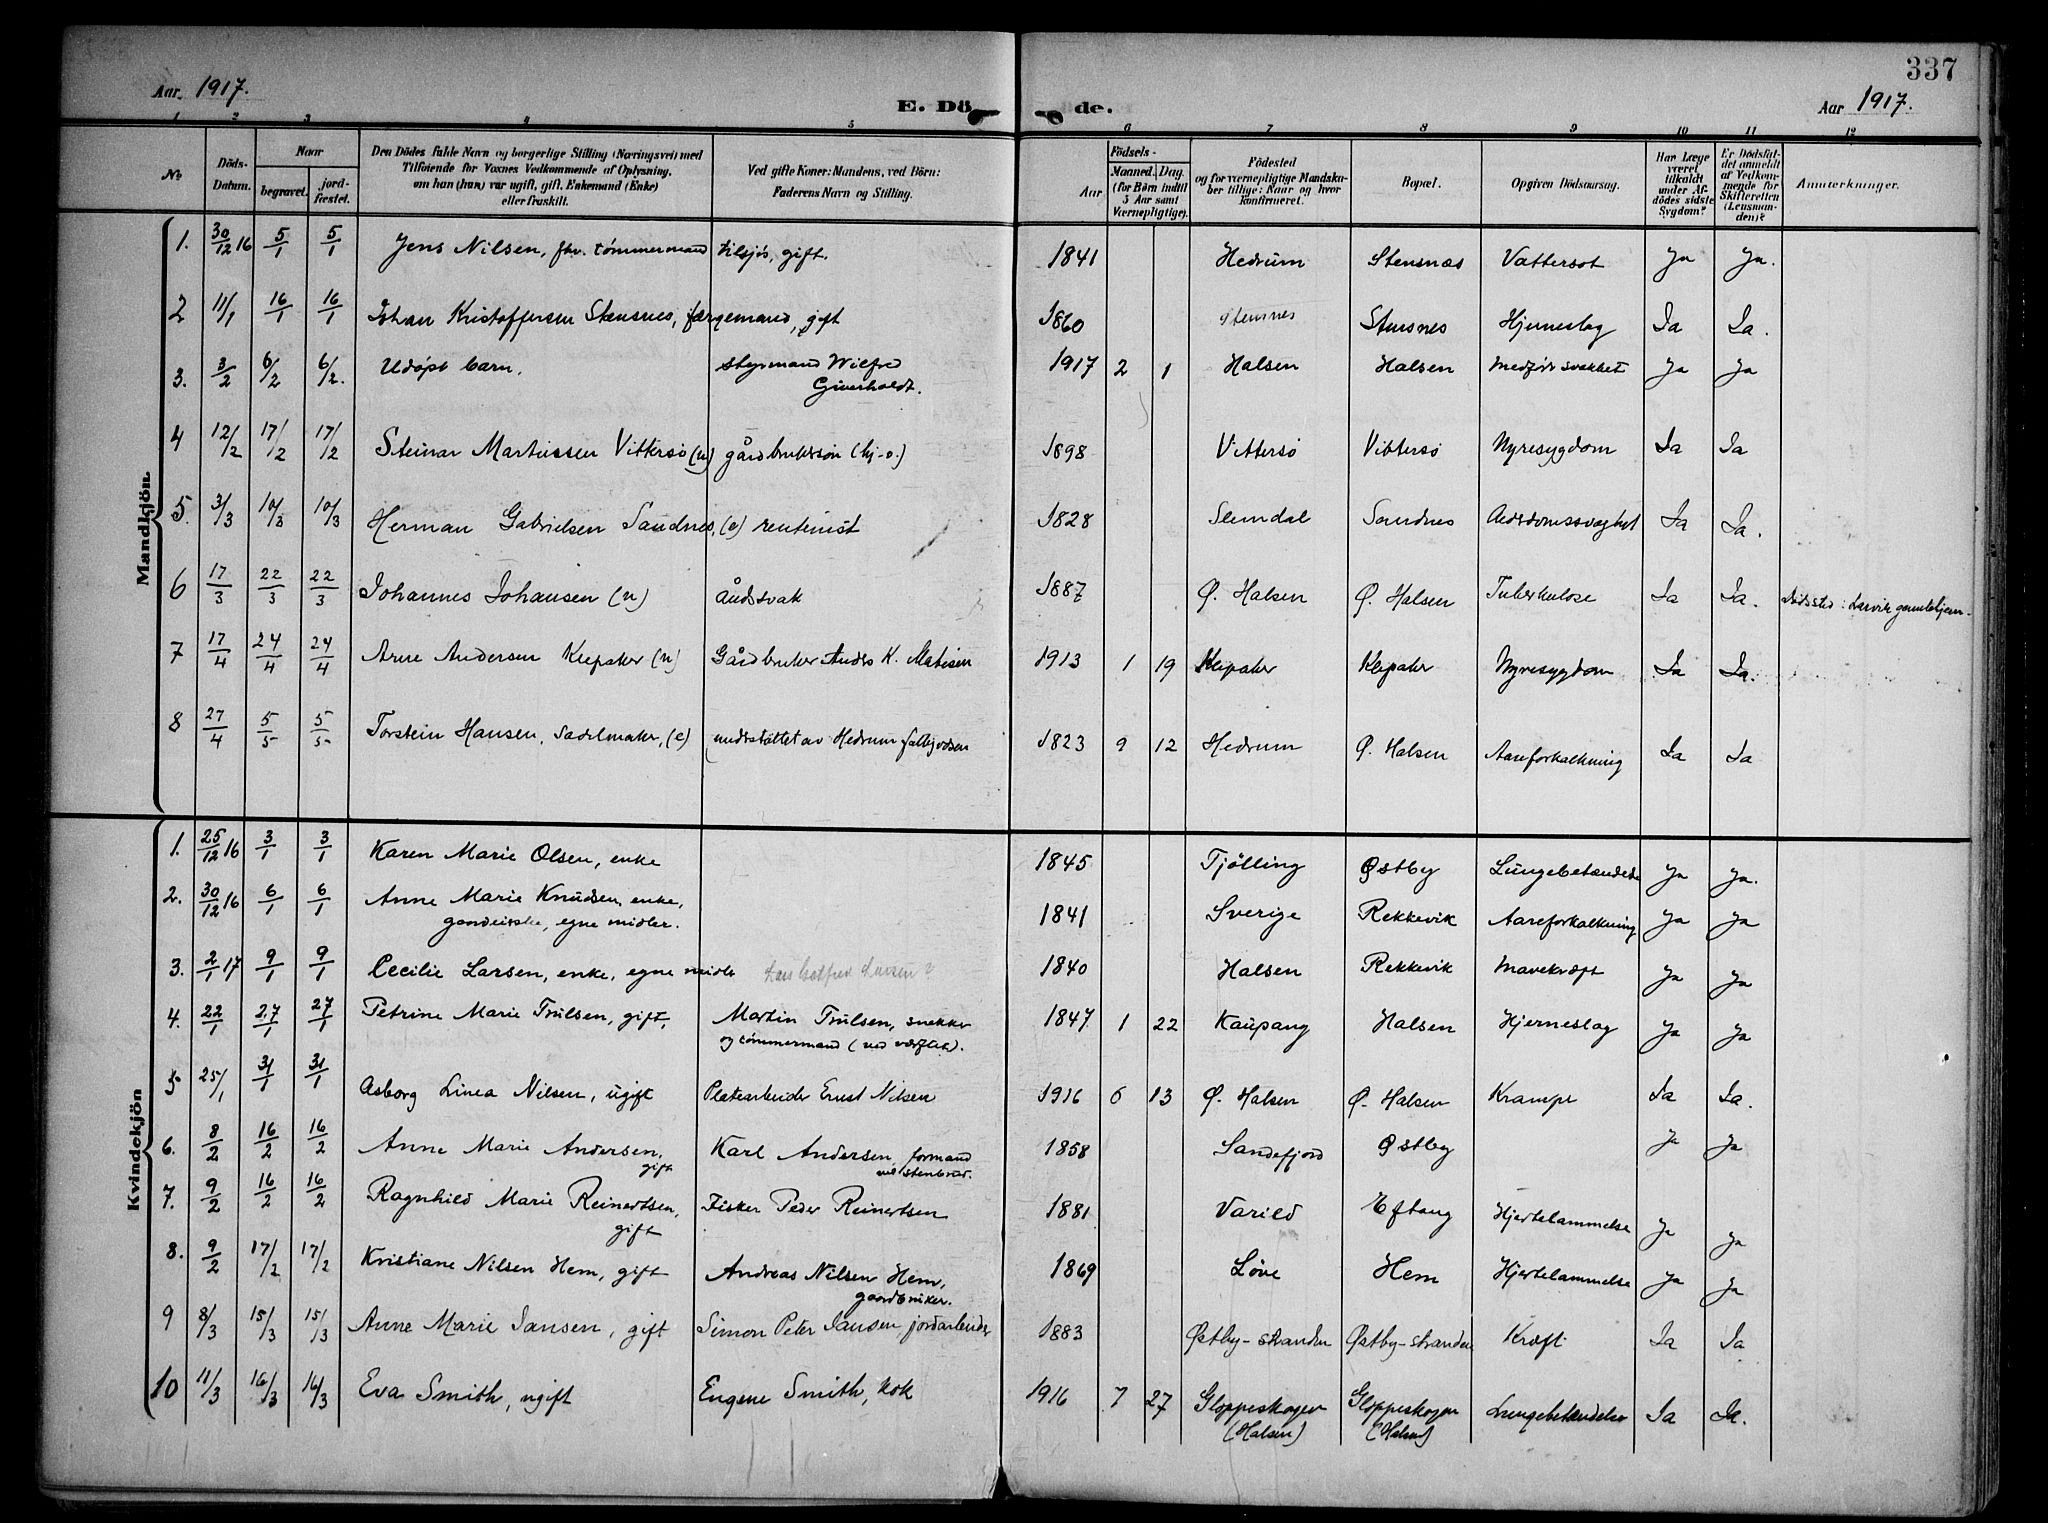 337
Aar 1917.
E. Dö de.
Aar 1917.
1 2 3 4 5 6 7 8 9 10 11 12
No
Döds-Datum.
Naar
begravet.
jord-fæstet.
Den Dödes fulde Navn og borgerlige Stilling (Næringsvei) med
Tilföiende for Voxnes Vedkommende af Oplysning,
om han (hun) var ugift, gift, Enkemand (Enke)
eller fraskilt.
Ved gifte Koner: Mandens, ved Börn:
Faderens Navn og Stilling.
Aar
Födsels-
Maaned. Dag.
(for Börn indtil
5 Aar samt
Værnepligtige).
Födested
og for værnepligtige Mandska-
ber tillige: Naar og hvor
konfirmeret.
Bopæl.
Opgiven Dödsaarsag.
Har Læge
været
tilkaldt
under Af-
dödes sidste
Sygdom?
Er Dödsfal-
det anmeldt
af Vedkom-
mende for
Skifteretten
(Lensman-
den)?
Anmærkninger.
Mandkjön.
1. 30/12 16 5/1 5/1 Jens Nilsen, fhv. tømmermand tilsjøs, gift. 1841 Hedrum Stensnæs Vattersot Ja Ja.
2 11/1 16/1 16/1 Johan Kristoffersen Stensnes, færgemand, gift 1860 Stensnes Stensnes Hjerneslag Ja Ja.
3. 3/2 6/2 6/2. Udøpt barn. styrmand Wilfred
1917 2 1 Halsen Halsen medfødt svakhet Ja Ja
4 12/2 17/2 17/2 Steinar Martinssen Vittersø (u) gårdbrukersøn (hj-o.) 1898 Vittersø Vittersø Nyresygdom Ja Ja
5. 3/3 10/3 10/3 Herman Gabrielsen Sandnes, (e) rentenist 1828 Slemdal Sandnes Ja Ja.
6 17/3 22/3 22/3 Johannes Johansen (u) Åndssvak 1887 Ø. Halsen Ø. Halsen Tuberkulose Ja Ja. Dødssted: Larvik gamlehjem.
7 17/4 24/4 24/4 Arne Andersen Klepaker (u) Gårdbruker Anders K. Matisen 1913 1 19 Klepaker Klepaker Nyresygdom Ja Ja.
8 27/4 5/5 5/5 Torstein Hansen, sadelmaker, (e) understøttet av Hedrum 1823 9 12 Hedrum Ø. Halsen Aareforkalkning Ja Ja
Kvindekjön
1. 25/12 16 3/1 3/1 Karen Marie Olsen, enke 1845 Tjølling Østby Lungebetændelse Ja Ja.
2. 30/12 16 6/1 6/1 Anne Marie Knudsen, enke,
egne midler. 1841 Sverige Rekkevik Aareforkalkning Ja Ja
3. 2/1 17 9/1 9/1 Cecilie Larsen, enke, egne midler Larsen? 1840 Halsen Rekkevik Mavekræft Ja Ja
4. 22/1 27/1 27/1 Petrine Marie Trulsen, gift, Martin Trulsen, snekker
og tømmermand (ved værftet). 1847 1 22 Kaupang Halsen Hjerneslag Ja Ja
5 25/1 31/1 31/1 Asborg Linea Nilsen, ugift Platearbeider Ernst Nilsen 1916 6 13 Ø. Halsen Ø. Halsen Krampe Ja Ja.
6. 8/2 16/2 16/2 Anne Marie Andersen,
gift Karl Andersen, formand
ved stenbrud. 1858 Sandefjord Østby Ja Ja
7. 9/2 16/2 16/2 Ragnhild Marie Reinertsen,
gift Fisker Peder Reinertsen 1881 Varild Eftang Hjertelammelse Ja Ja
8. 9/2 17/2 17/2 Kristiane Nilsen Hem, gift Andreas Nilsen Hem,
gaardbruker. 1869 Løve Hem Hjertelammelse Ja Ja
9 8/3 15/3 15/3 Anne Marie Jansen, gift Simon Peter Jansen jordarbeider 1883 Østby-stranden Østby-stranden Kræft Ja Ja
10 11/3 16/3 16/3 Eva Smith, ugift Eugene Smith, kok 1916 7 27 Gloppeskogen
(Halsen) Gloppeskogen
(Halsen) Lungebetændelse Ja Ja.